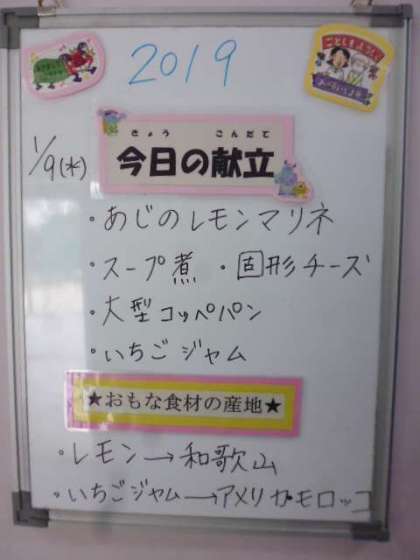 2019
ことしもよろしく
1/9(水)
きょう こんだて
今日の献立
・あじのレモンマリネ
・スープ煮 ・固形チーズ
・大型コッペパン
・いちごジャム
★おもな食材の産地★
・レモン→和歌山
・いちごジャム→アメリカ・モロッコ